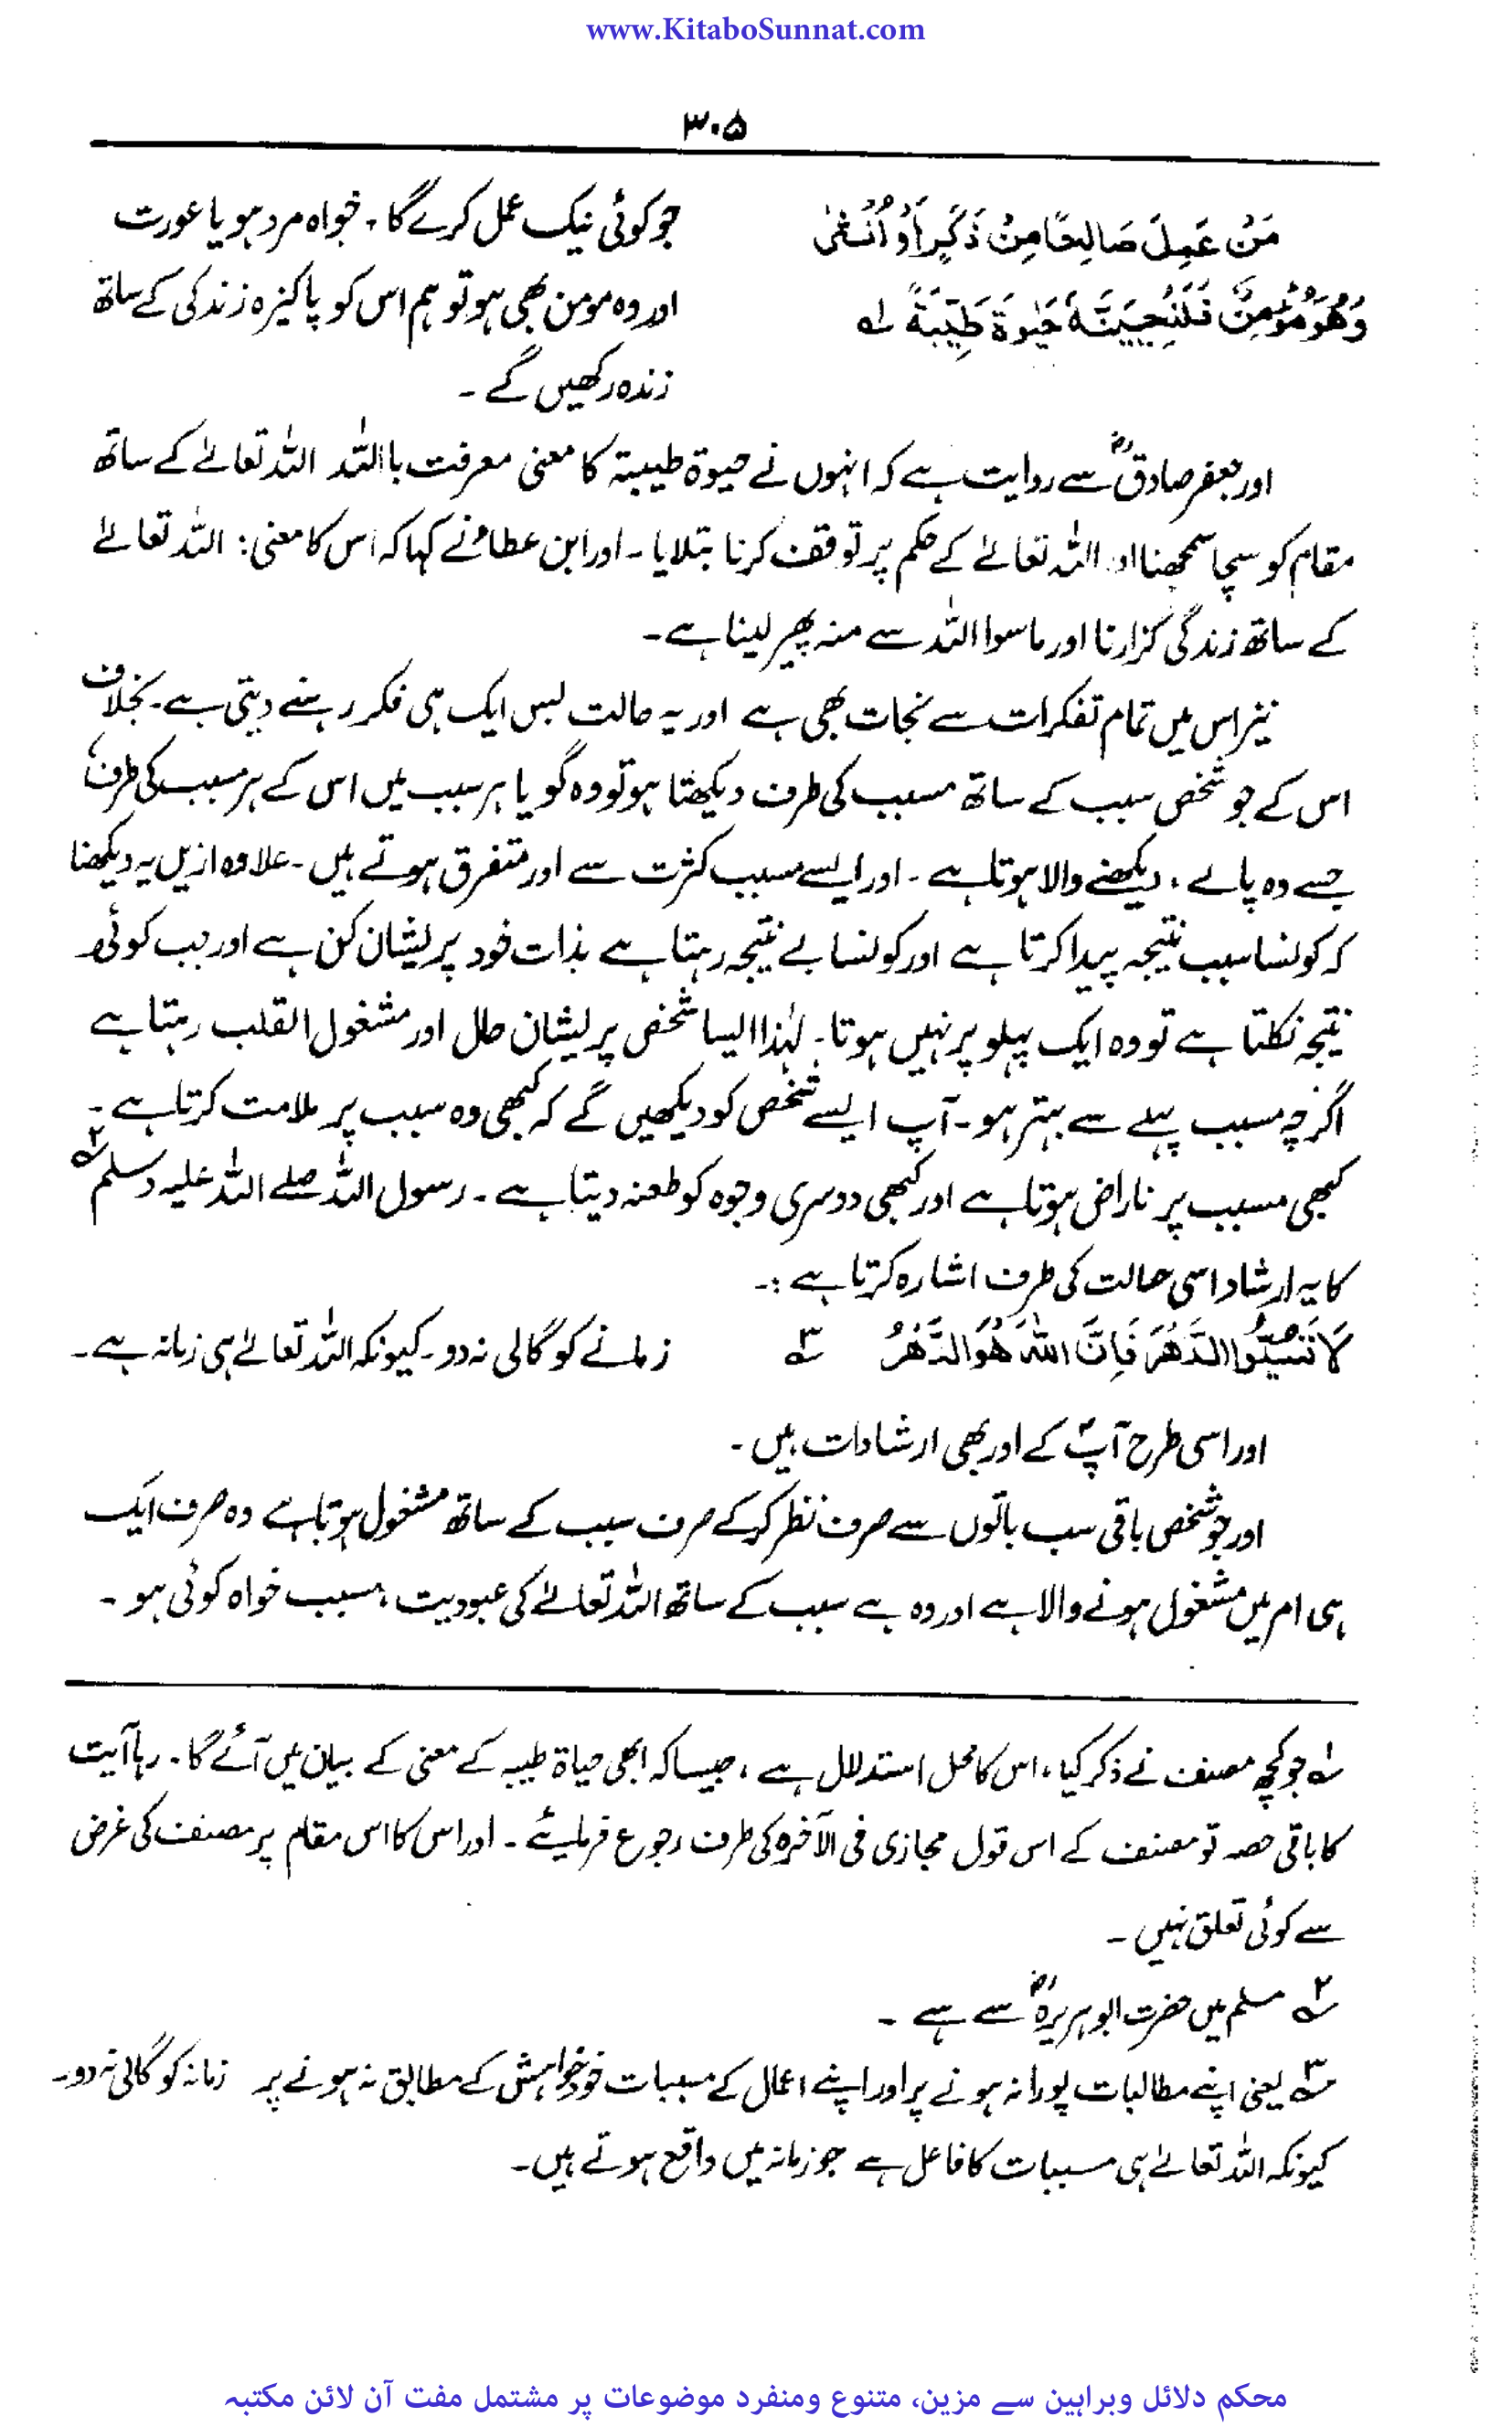 www.KitaboSunnat.com
۳۰۵
مَنْ عَمِلَ صَالِحًا مِنْ ذَكَرٍ اَوْ اُنْثٰى
وَهُوَ مُؤْمِنٌ فَلَنُحْيِيَنَّهٗ حَيٰوةً طَيِّبَةً ۱؎
جو کوئی نیک عمل کرے گا۔ خواہ مرد ہو یا عورت
اور وہ مومن بھی ہو تو ہم اس کو پاکیزہ زندگی کے ساتھ
زندہ رکھیں گے ۔
اور جعفر صادقؓ سے روایت ہے کہ انہوں نے حیوة طیبۃ کا معنی معرفت باللہ اللہ تعالےٰ کے ساتھ
مقام کو سچا سمجھنا اور اللہ تعالےٰ کے حکم پر توقف کرنا بتلایا ۔ اور ابن عطاء نے کہا کہ اس کا معنی: اللہ تعالےٰ
کے ساتھ زندگی گزارنا اور ماسوا اللہ سے منہ پھیر لینا ہے۔
نیز اس میں تمام تفکرات سے نجات بھی ہے اور یہ حالت بس ایک ہی فکر رہنے دیتی ہے۔ بخلاف
اس کے جو شخص سبب کے ساتھ مسبب کی طرف دیکھتا ہو تو وہ گویا ہر سبب میں اس کے ہر مسبب کی طرف،
جسے وہ پالے ، دیکھنے والا ہوتا ہے ۔ اور ایسے مسبب کثرت سے اور متفرق ہوتے ہیں ۔ علاوہ ازیں یہ دیکھنا
کہ کونسا سبب نتیجہ پیدا کرتا ہے اور کونسا بے نتیجہ رہتا ہے بذات خود پریشان کن ہے اور جب کوئی
نتیجہ نکلتا ہے تو وہ ایک پہلو پر نہیں ہوتا۔ لہٰذا ایسا شخص پریشان حال اور مشغول القلب رہتا ہے
اگرچہ مسبب پہلے سے بہتر ہو ۔ آپ ایسے شخص کو دیکھیں گے کہ کبھی وہ سبب پر ملامت کرتا ہے ۔
کبھی مسبب پر ناراض ہوتا ہے اور کبھی دوسری وجوہ کو طعنہ دیتا ہے ۔ رسول اللہ صلے اللہ علیہ وسلم ۲؎
کا یہ ارشاد اسی حالت کی طرف اشارہ کرتا ہے :۔
لَا تَسُبُّوا الدَّهْرَ فَاِنَّ اللّٰهَ هُوَ الدَّهْرُ ۳؎
زمانے کو گالی نہ دو ۔ کیونکہ اللہ تعالےٰ ہی زمانہ ہے ۔
اور اسی طرح آپؐ کے اور بھی ارشادات ہیں ۔
اور جو شخص باقی سب باتوں سے صرف نظر کرکے صرف سبب کے ساتھ مشغول ہوتا ہے وہ صرف ایک
ہی امر میں مشغول ہونے والا ہے اور وہ ہے سبب کے ساتھ اللہ تعالےٰ کی عبودیت ، مسبب خواہ کوئی ہو ۔
۱؎ جو کچھ مصنف نے ذکر کیا ، اس کا محل استدلال ہے ، جیسا کہ ابھی حیاة طیبہ کے معنی کے بیان میں آئے گا ۔ رہا آیت
کا باقی حصہ تو مصنف کے اس قول مجازی فی الآخرہ کی طرف رجوع فرمائیے ۔ اور اس کا اس مقام پر مصنف کی غرض
سے کوئی تعلق نہیں ۔
۲؎ مسلم میں حضرت ابوہریرہؓ سے ہے ۔
۳؎ یعنی اپنے مطالبات پورا نہ ہونے پر اور اپنے اعمال کے مسببات خود خواہش کے مطابق نہ ہونے پر زمانہ کو گالی نہ دو ۔
کیونکہ اللہ تعالےٰ ہی مسببات کا فاعل ہے جو زمانہ میں واقع ہوتے ہیں ۔
محکم دلائل وبراہین سے مزین، متنوع ومنفرد موضوعات پر مشتمل مفت آن لائن مکتبہ